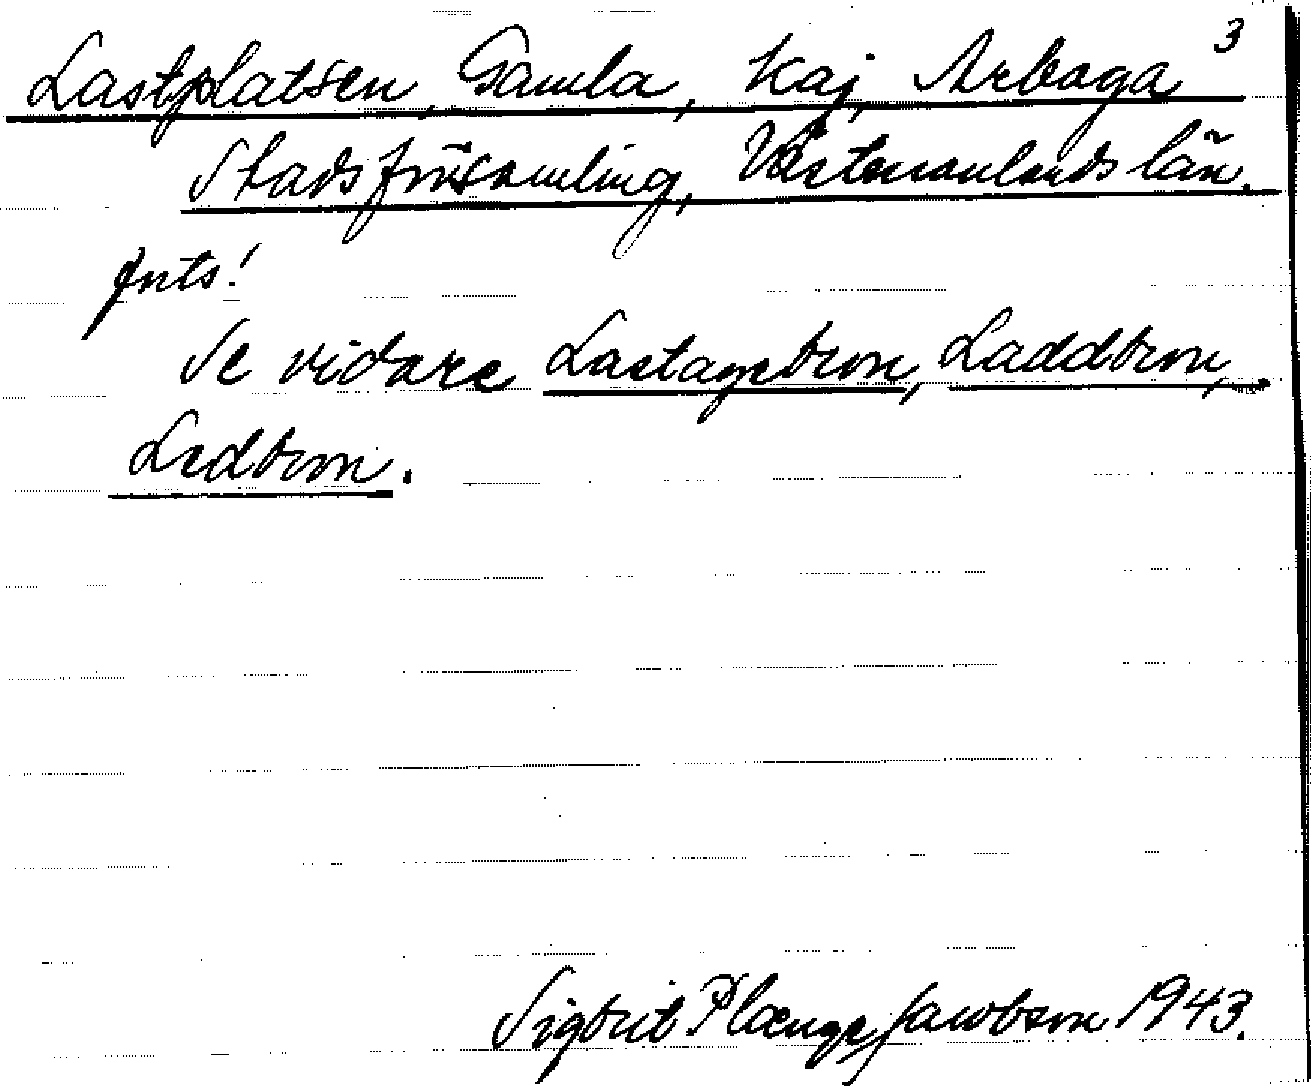 3
Lastplatsen, Gamla, Kaj, Arboga
Stadsförsamling, Västmanlands län.
forts!
Se vidare Lastagebron, Laddbron,
Ladbron.
Sigbrit Plænge Jacobson 1943.